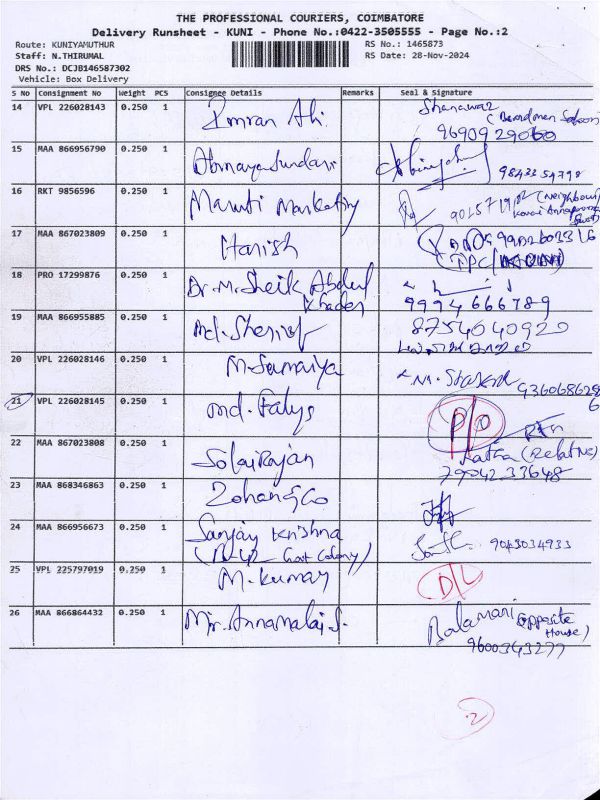 THE PROFESSIONAL COURIERS, COIMBATORE
Delivery Runsheet - KUNI - Phone No.:0422-3505555 - Page No.:2
Route: KUNIYAMUTHUR RS No.: 1465873
Staff: N.THIRUMAL RS Date: 28-Nov-2024
DRS No.: DCJB146587302
Vehicle: Box Delivery
S No Consignment No Weight PCS Consignee Details Remarks Seal & Signature
14 VPL 226028143 0.250 1 Imran Ali Shanawaz
9690929060
15 MAA 866956790 0.250 1 Abinaya Sundari 9842254798
16 RKT 9856596 0.250 1 Maruti Marketing (Neighbour)
17 MAA 867023809 0.250 1 Harish
18 PRO 17299876 0.250 1 Dr. M. Sheik Abdul Khader 9994666789
19 MAA 866955885 0.250 1 Md. Sherief 8754040920
20 VPL 226028146 0.250 1 M. Sumaiya
21 VPL 226028145 0.250 1 Md. Falys D/O
22 MAA 867023808 0.250 1 Solairajan Latha (Relative)
7904233648
23 MAA 868346863 0.250 1 Zohan & Co
24 MAA 866956673 0.250 1 Sanjay Krishna 9043034933
25 VPL 225797019 0.250 1 M. Kumar D/L
26 MAA 866864432 0.250 1 Mr. Annamalai S. Balamani (opposite House)
9600343277
2